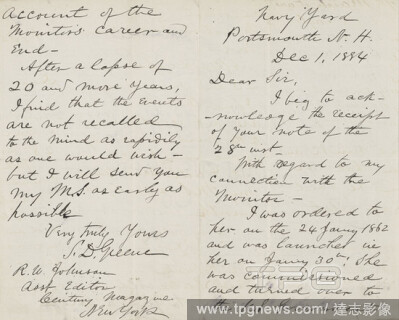 Navy Yard
Portsmouth N.H.
Dec 1, 1884
Dear Sir,
I beg to ack-
nowledge the receipt
of your note of the
28th inst.
With regard to my
connection with the
Monitor –
I was ordered to
her on the 24 Jany 1862
and was launched in
her on Jany 30th, She
was commissioned
and turned over to
Account of the
Monitors career and
End –
After a lapse of
20 and more years,
I find that the events
are not recalled
to the mind as rapidily
as one would wish –
but I will send you
my M.S. as early as
possible
Very truly Yours
S. D. Greene
R. W. Johnson
Asst Editor
Century Magazine
New York
www.tpgnews.com | 達志影像